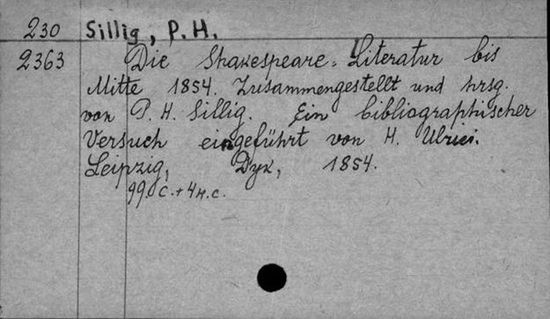 230 Sillig, P. H.
2363 Die Shakespeare-Literatur bis
Mitte 1854. Zusammengestellt und hrsg.
von P. H. Sillig. Ein bibliographischer
Versuch eingeführt von H. Ulrici.
Leipzig, Dyk, 1854.
99 с. + 4 н. с.